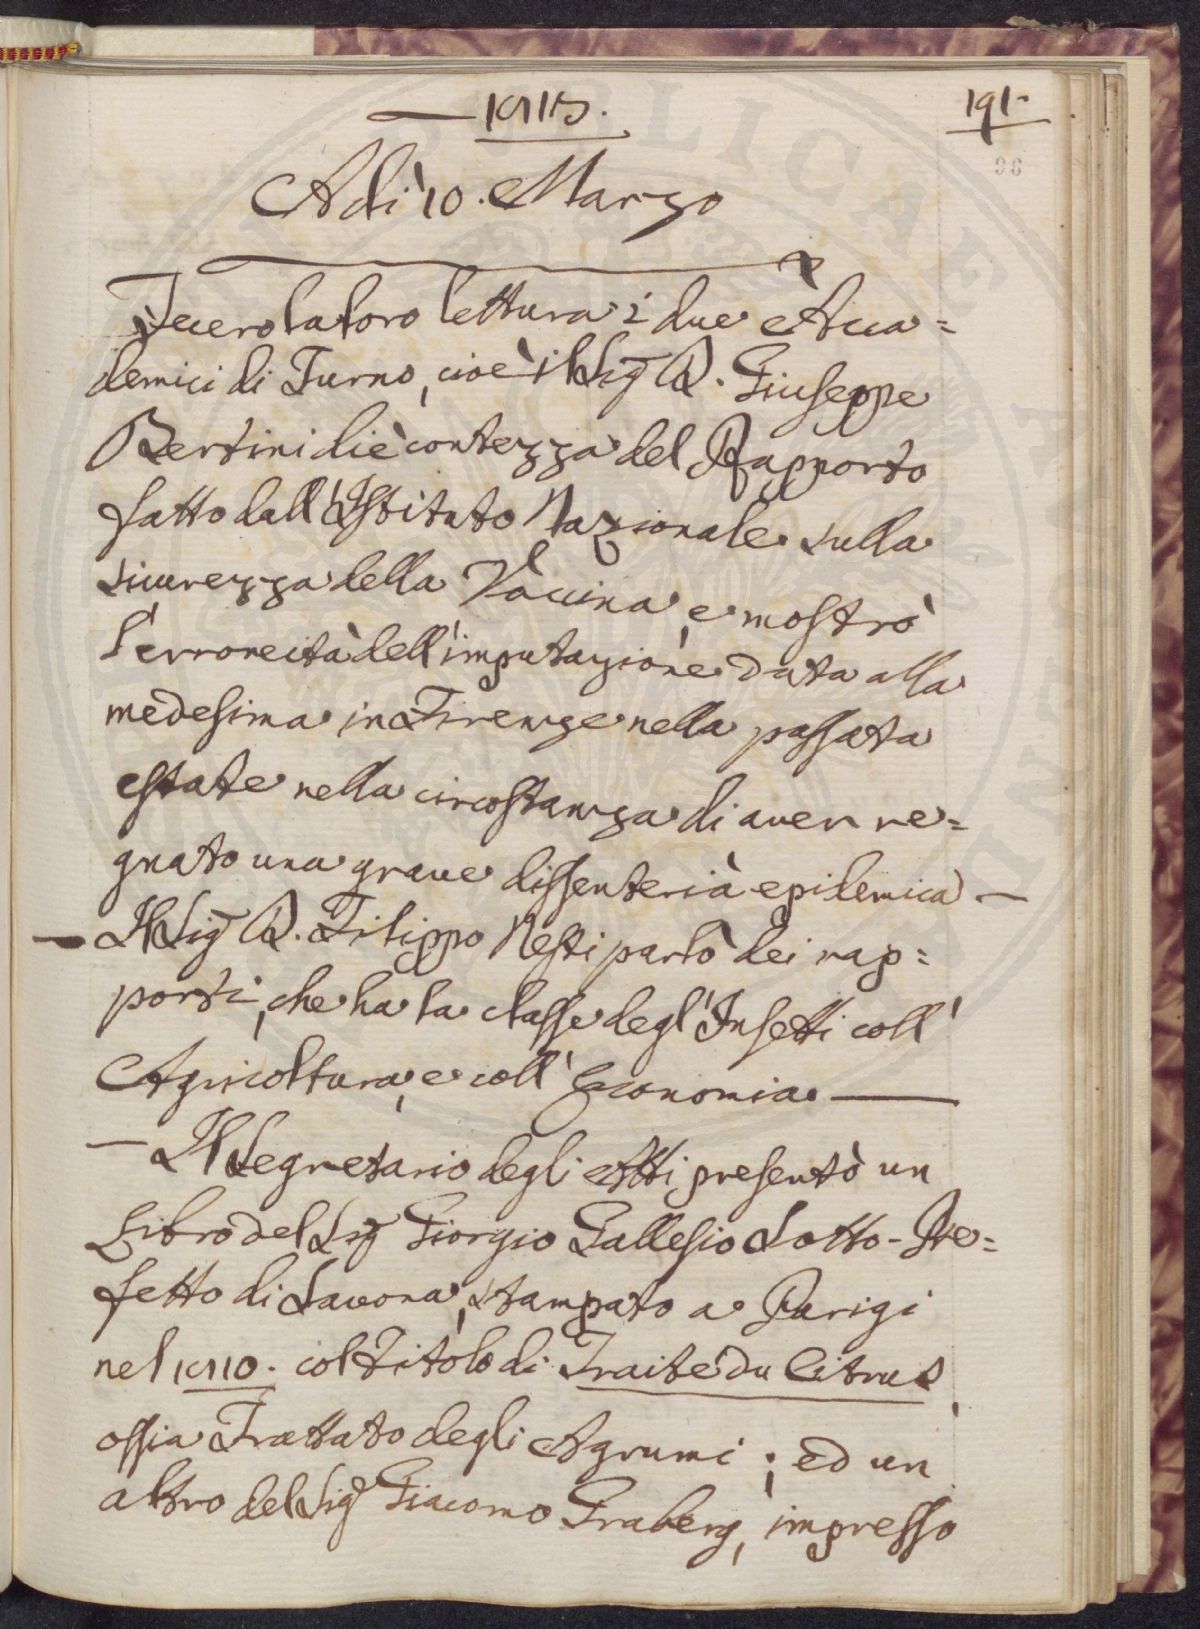 — 1815.
191.
96
Adì 10. Marzo
Fecero la loro lettura i due Acca=
demici di Turno, cioè il Sig.r D. Giuseppe
Bertini diè contezza del Rapporto
fatto dall'Istituto Nazionale sulla
sicurezza della Vaccina, e mostrò
l'erroneità dell'imputazione data alla
medesima in Firenze nella passata
estate nella circostanza di aver re=
gnato una grave dissenteria epidemica —
— Il Sig.r D. Filippo Nesti parlò dei rap=
porti, che ha la classe degl'Insetti coll'
Agricoltura, e coll'Economia. —
— Il Segretario degli Atti presentò un
Libro del Sig.r Giorgio Gallesio Sotto-Pre=
fetto di Savona, stampato a Parigi
nel 1810. col Titolo di Traité du Citrus,
ossia Trattato degli Agrumi; ed un
altro del Sig.r Giacomo Graberg, impresso